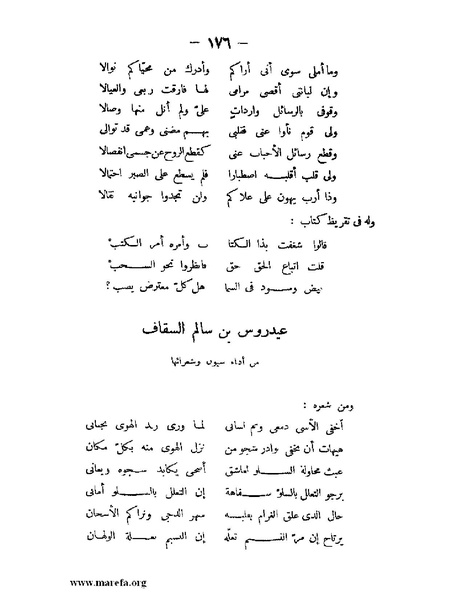 — ١٧٦ —
وما أملى سوى أنى أراكم وأدرك من محياكم نوالا
وإن لبانتى أقصى مرامى لها فارقت ربعى والعيالا
وقوفى بالرسائل واردات علىّ ولم أنل منها وصالا
ولى قوم نأوا عنى فقلبى بهم مضنى وهمى قد توالى
وقطع رسائل الأحباب عنى كقطع الروح عن جسمى انفصالا
ولى قلب أقلبه اصطبارا فلم يسطع على الصبر احتمالا
وذا أرب يهون على علاكم ولن تجدوا جوانبه ثقالا
وله فى تقريظ كتاب :
قالوا شغفت بذا الكتا ب وأمره أمر الكتب
قلت اتباع الحق حق فانظروا نحو السحب
بيض وسود فى السما هل كلّ معترض يصب ؟
عيدروس بن سالم السقاف
من أدباء سيون وشعرائها
ومن شعره :
أخفى الأسى دمعى ونم لسانى لما ورى زند الهوى بجنانى
هيهات أن يخفى بوادر شجو من نزل الهوى منه بكلّ مكان
عبث محاولة السلو لعاشق أضحى يكابد شجوه ويعانى
يرجو التعلل بالسلوّ سفاهة إن التعلل بالسلو أمانى
حال الذى علق الغرام بقلبه سهر الدجى وتراكم الأشجان
يرتاح إن مرّ النسيم تعلّه إن النسيم تعلة الولهان
www.marefa.org